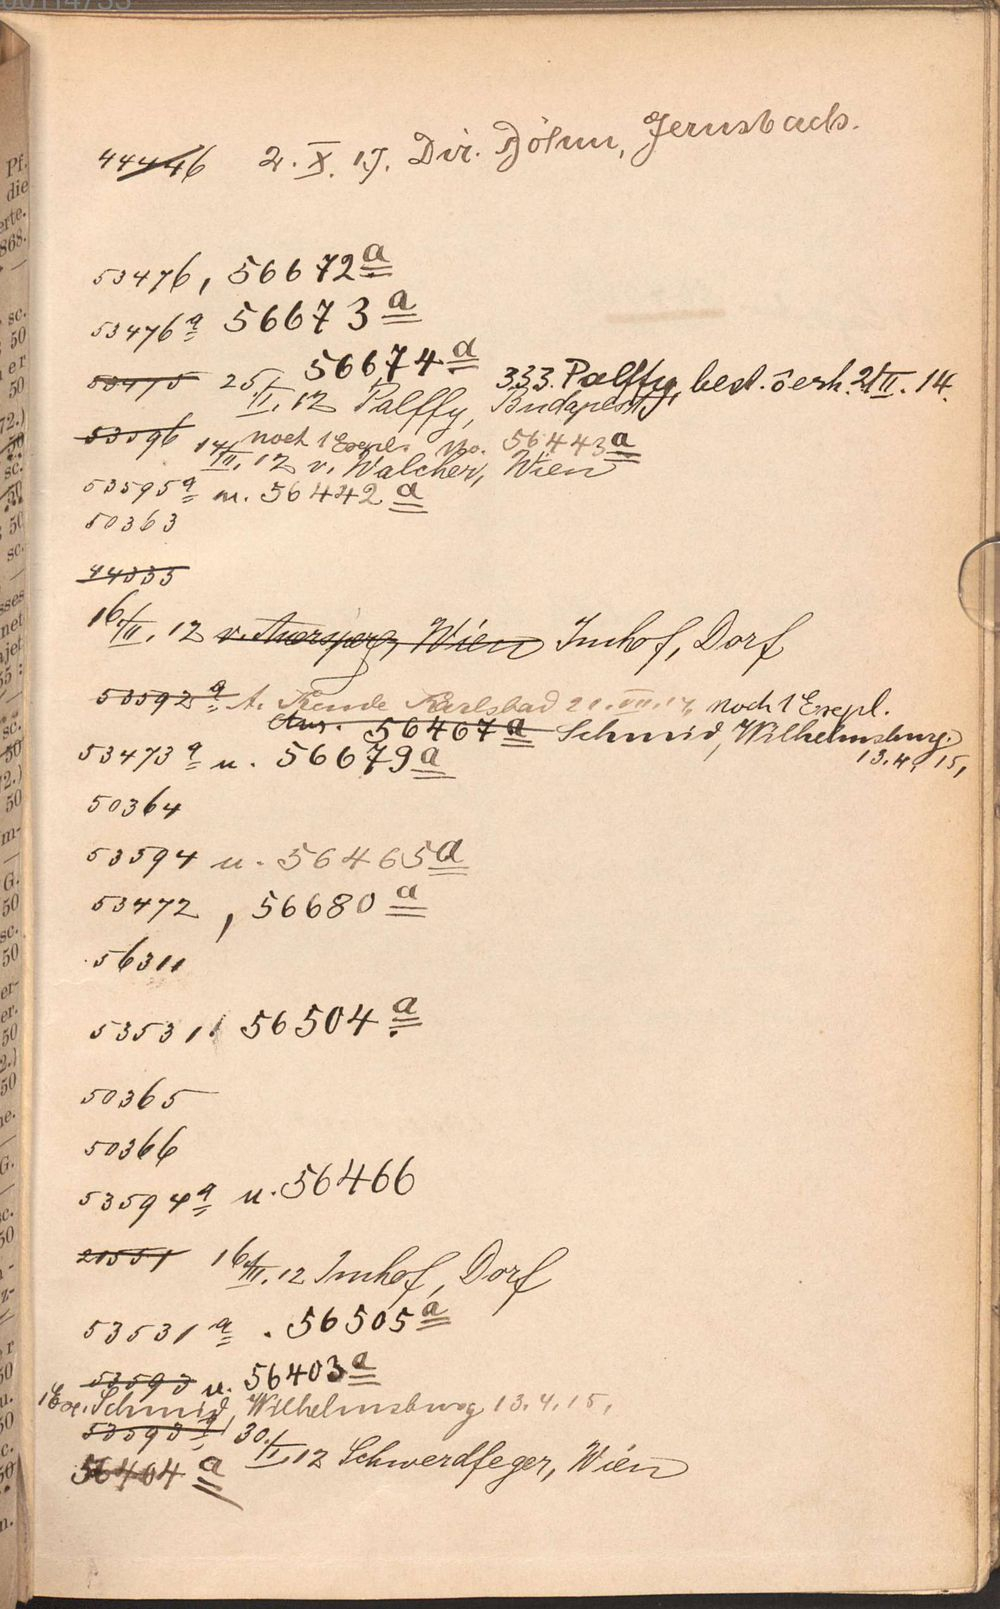 00114755
44446 2. X. 17. Dir. Böhm, Jernsbach.
53476, 56672 a
53476 a 56673 a
56674 a
53475 25/I. 12 Palffy, Budapest 333. Palffy, best. 21 II. 14.
53596 noch 1 Exepl. No. 56443 a
14/II. 12 v. Walcher, Wien
53595 a u. 56442 a
50363
44335
16/II. 12 v. Auersperg, Wien Imhof, Dorf
53592 a Karlsbad 21. VII. 17, noch 1 Exepl.
56467 a Schmid, Wilhelmsburg.
13. 4. 15,
53473 a u. 56679 a
50364
53594 u. 56465 a
53472, 56680 a
56311
53531. 56504 a
50365
50366
53594 a u. 56466
21551 16/III. 12 Imhof, Dorf
53531 a . 56505 a
53593 u. 56403 a
1 Ex. Schmid, Wilhelmsburg 13. 4. 15,
53593 a 30./I. 12 Schwerdfeger, Wien
56404 a
Pf.
die
erte.
868.
sc.
50
er
50